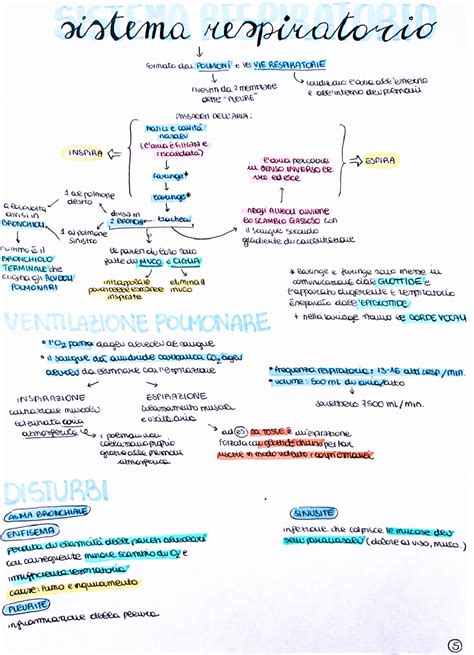 sistema respiratorio
formato dai POLMONI e VIE RESPIRATORIE
rivestiti da 2 membrane
dette "PLEURE"
conducono l'aria all'esterno
e all'interno dei polmoni
PASSAGGI DELL'ARIA:
INSPIRA
NARICI E CAVITÀ
NASALI
(l'aria è filtrata e
riscaldata)
faringe*
laringe*
trachea
divisa in
2 BRONCHI
1 al polmone
destro
1 al polmone
sinistro
a loro volta
divisi in
BRONCHIOLI
l'ultimo è il
BRONCHIOLO
TERMINALE che
origina gli ALVEOLI
POLMONARI
le pareti di esso sono
fatte da MUCO e CIGLIA
intrappola
particelle estranee
inspirate
elimina il
muco
ESPIRA
l'aria percorre
in senso inverso le
vie ed esce
negli alveoli avviene
lo scambio gassoso con
il sangue secondo
gradiente di concentrazione
* laringe e faringe sono messe in
comunicazione dalla GLOTTIDE e
l'apparato digerente e respiratorio
è separato dall'EPIGLOTTIDE
+ nella laringe ci sono le CORDE VOCALI
VENTILAZIONE POLMONARE
• l'O2 passa dagli alveoli al sangue
• il sangue dà anidride carbonica CO2 agli
alveoli da eliminare con l'espirazione
• frequenza respiratoria: 13-16 atti resp/min.
• volume: 500 ml di aria/atto
sarebbero 7500 mL/min.
INSPIRAZIONE
contrazione muscoli
ed entrata aria
atmosferica
ESPIRAZIONE
rilassamento muscoli
e uscita aria
i polmoni non
collassano proprio
grazie alla pressione
atmosferica
ad es. LA TOSSE è un'espirazione
forzata con glottide chiusa per far
uscire in modo violento i corpi estranei
DISTURBI
ASMA BRONCHIALE
ENFISEMA
perdita di elasticità delle pareti alveolari
con conseguente minore scambio di O2 e
insufficienza respiratoria
cause: fumo e inquinamento
PLEURITE
infiammazione della pleura
SINUSITE
infezione che colpisce le mucose dei
seni paranasali (dolore al viso, muco..)
5